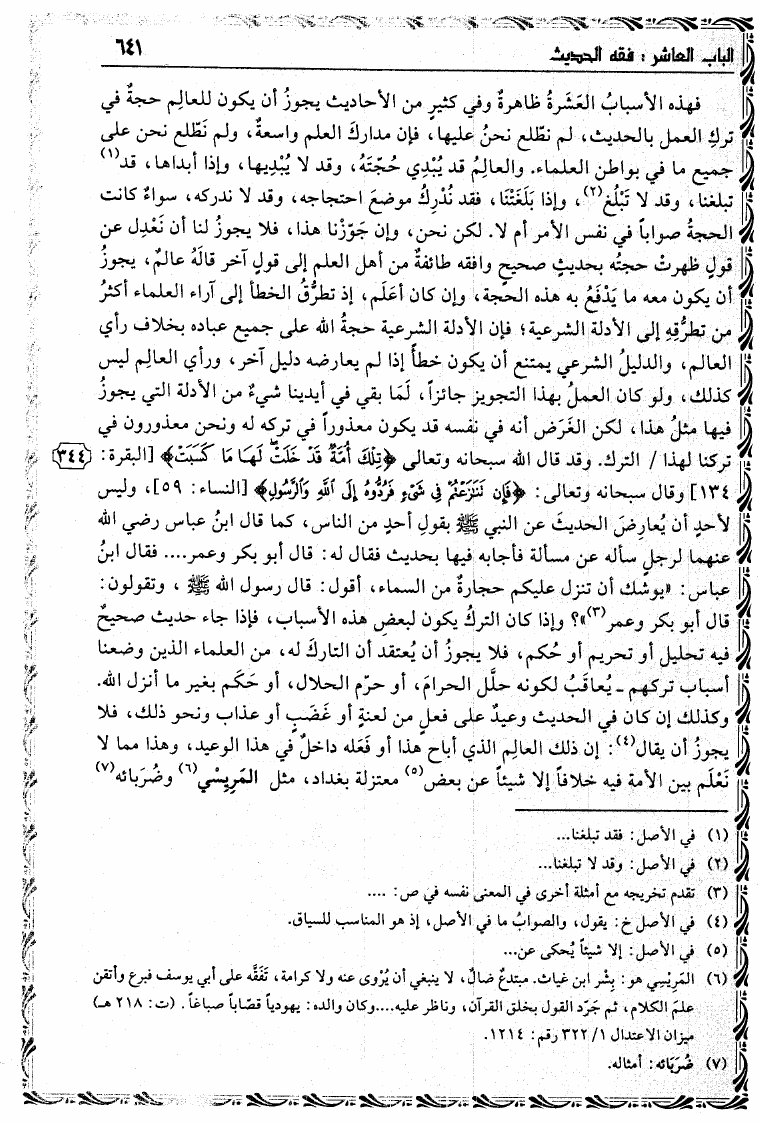 الباب العاشر : فقه الحديث
٦٤١
فهذه الأسبابُ العَشَرةُ ظاهرةٌ وفي كثيرٍ من الأحاديث يجوزُ أن يكون للعالِم حجةٌ في
تركِ العمل بالحديث، لم نطّلع نحنُ عليها، فإن مداركَ العلم واسعةٌ، ولم نَطّلع نحن على
جميع ما في بواطن العلماء. والعالِمُ قد يُبْدِي حُجّتَهُ، وقد لا يُبْدِيها، وإذا أبداها، قد(١)
تبلغنا، وقد لا تَبْلُغ(٢)، وإذا بَلَغَتْنَا، فقد نُدْرِكُ موضعَ احتجاجه، وقد لا ندركه، سواءٌ كانت
الحجةُ صواباً في نفس الأمر أم لا. لكن نحن، وإن جَوّزْنا هذا، فلا يجوزُ لنا أن نَعْدِل عن
قولٍ ظهرتْ حجتُه بحديثٍ صحيحٍ وافقه طائفةٌ من أهل العلم إلى قولٍ آخر قالَهُ عالمٌ، يجوزُ
أن يكون معه ما يَدْفَعُ به هذه الحجة، وإن كان أعْلَم، إذ تطرُّقُ الخطأ إلى آراء العلماء أكثرُ
من تطرُّقِهِ إلى الأدلة الشرعية؛ فإن الأدلة الشرعية حجةُ الله على جميع عباده بخلاف رأي
العالم، والدليلُ الشرعي يمتنع أن يكون خطأً إذا لم يعارضه دليل آخر، ورأي العالِم ليس
كذلك، ولو كان العملُ بهذا التجويز جائزاً، لَمَا بقي في أيدينا شيءٌ من الأدلة التي يجوزُ
فيها مثلُ هذا، لكن الغَرَض أنه في نفسه قد يكون معذوراً في تركه له ونحن معذورون في
تركنا لهذا / الترك. وقد قال الله سبحانه وتعالى ﴿تِلْكَ أُمَّةٌ قَدْ خَلَتْ لَهَا مَا كَسَبَتْ﴾ [البقرة: ٣٤٤
١٣٤] وقال سبحانه وتعالى: ﴿فَإِن تَنَٰزَعْتُمْ فِي شَيْءٍ فَرُدُّوهُ إِلَى ٱللَّهِ وَٱلرَّسُولِ﴾ [النساء: ٥٩]، وليس
لأحدٍ أن يُعارِضَ الحديثَ عن النبي ﷺ بقولِ أحدٍ من الناس، كما قال ابنُ عباس رضي الله
عنهما لرجلٍ سأله عن مسألة فأجابه فيها بحديث فقال له: قال أبو بكر وعمر.... فقال ابنُ
عباس: «يوشك أن تنزل عليكم حجارةٌ من السماء، أقول: قال رسول الله ﷺ ، وتقولون:
قال أبو بكر وعمر(٣)»؟ وإذا كان التركُ يكون لبعضِ هذه الأسباب، فإذا جاء حديث صحيحٌ
فيه تحليل أو تحريم أو حُكم، فلا يجوزُ أن يُعتقد أن التاركَ له، من العلماء الذين وضعنا
أسباب تركهم ـ يُعاقَبُ لكونه حلَّل الحرامَ، أو حرّم الحلال، أو حَكَم بغير ما أنزل الله.
وكذلك إن كان في الحديث وعيدٌ على فعلٍ من لعنةٍ أو غَضَبٍ أو عذاب ونحو ذلك، فلا
يجوزُ أن يقال(٤): إن ذلك العالِمَ الذي أباح هذا أو فَعَله داخلٌ في هذا الوعيد، وهذا مما لا
نَعْلَم بين الأمة فيه خلافاً إلا شيئاً عن بعض(٥) معتزلة بغداد، مثل المَرِيْسِي(٦) وضُرَبائه(٧)
(١) في الأصل: فقد تبلغنا...
(٢) في الأصل: وقد لا تبلغنا...
(٣) تقدم تخريجه مع أمثلة أخرى في المعنى نفسه في ص: ....
(٤) في الأصل خ: يقول، والصوابُ ما في الأصل، إذ هو المناسب للسياق.
(٥) في الأصل: إلا شيئاً يُحكى عن...
(٦) المَرِيْسِي هو: بِشْر ابن غياث. مبتدعٌ ضالٌ، لا ينبغي أن يُرْوى عنه ولا كرامة، تَفَقَّه على أبي يوسف فبرع وأتقن
علمَ الكلام، ثم جَرّد القول بخلق القرآن، وناظر عليه....وكان والده: يهودياً قصّاباً صباغاً. (ت: ٢١٨ هـ)
ميزان الاعتدال ٣٢٢/١ رقم: ١٢١٤.
(٧) ضُرَبَائه: أمثاله.